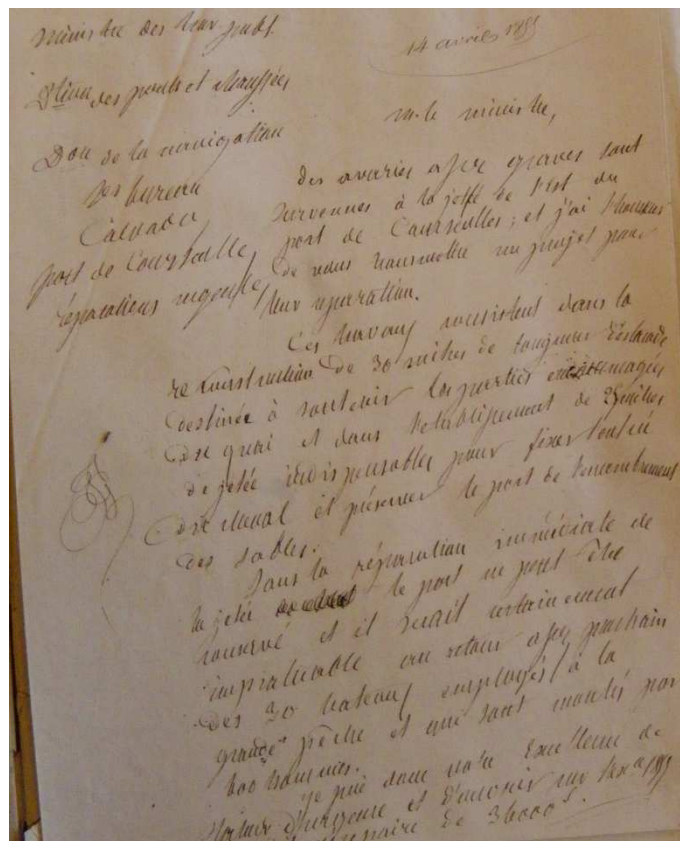 Ministre des trav. publ.
14 avril 1855
Dtion des ponts et chaussées
M. le ministre,
Don de la navigation
bureau
Calvados
port de Courseulles
réparations urgentes
des avaries assez graves sont
survenues à la jetée de l'est du
port de Courseulles ; et j'ai l'honneur
de vous transmettre un projet pour
leur réparation.
Ces travaux consistent dans la
reconstruction de 30 mètres de longueur d'estacade
destinée à soutenir les parties endommagées
du quai et dans l'établissement de mètres
de jetée indispensables pour fixer l'entrée
du chenal et préserver le port de l'encombrement
des sables.
Sans la réparation immédiate de
la jetée le port ne peut être
conservé et il serait certainement
impraticable au retour assez prochain
des 30 bateaux employés à la
grande pêche et qui sont montés par
600 hommes.
Je prie donc votre Excellence de
d'urgence et d'ouvrir sur l'ex. 1855
de 36000 f.